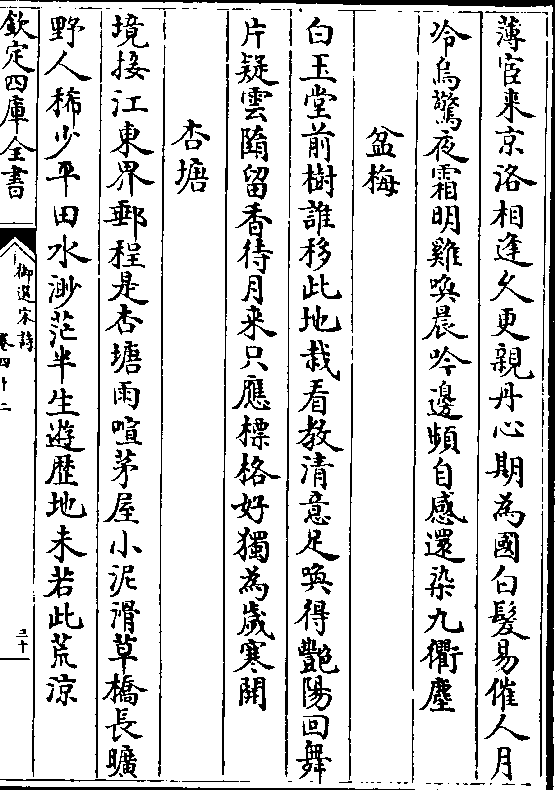 薄宦来京洛相逢久更親丹心期為國白髪易催人月
冷烏驚夜霜明雞喚晨吟邊頻自感還染九衢塵
盆梅
白玉堂前樹誰移此地栽看教清意足喚得艷陽回舞
片疑雲隋留香待月来只應標格好獨為歲寒開
杏塘
境接江東界郵程是杏塘雨喧茅屋小泥滑草橋長曠
野人稀少平田水渺茫半生遊歴地未若此荒涼
欽定四庫全書
御選宋詩
卷四十二
三十